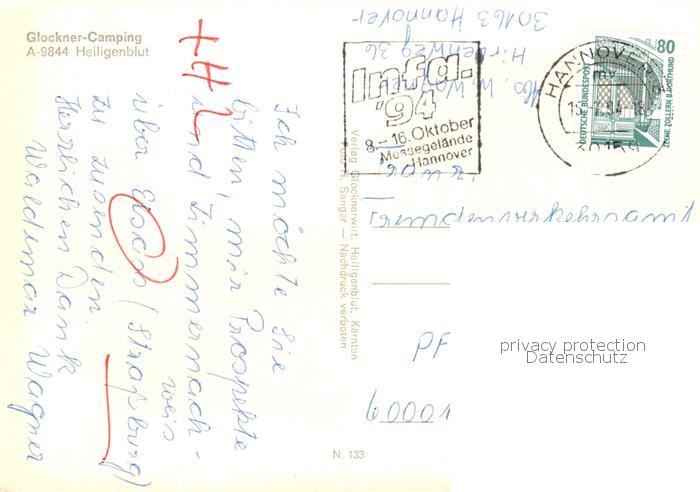 Glockner-Camping
A-9844 Heiligenblut
Ich möchte Sie
bitten, mir Prospekte
und Zimmernach-
weis
über Elsaß (Straßburg)
zu zusenden
Herzlichen Dank
Waldemar Wagner
+H
Verlag Glocknerwirt, Heiligenblut, Kärnten
Foto H. Sanger — Nachdruck verboten
N. 133
Abs. W. Wagner
30163 Hannover
Infa.
'94
8.–16. Oktober
Messegelände
Hannover
HANNOVER
mv
30159
80
DEUTSCHE BUNDESPOST
ZECHE ZOLLERN II · DORTMUND
Fremdenverkehrsamt
PF
6000
privacy protection
Datenschutz